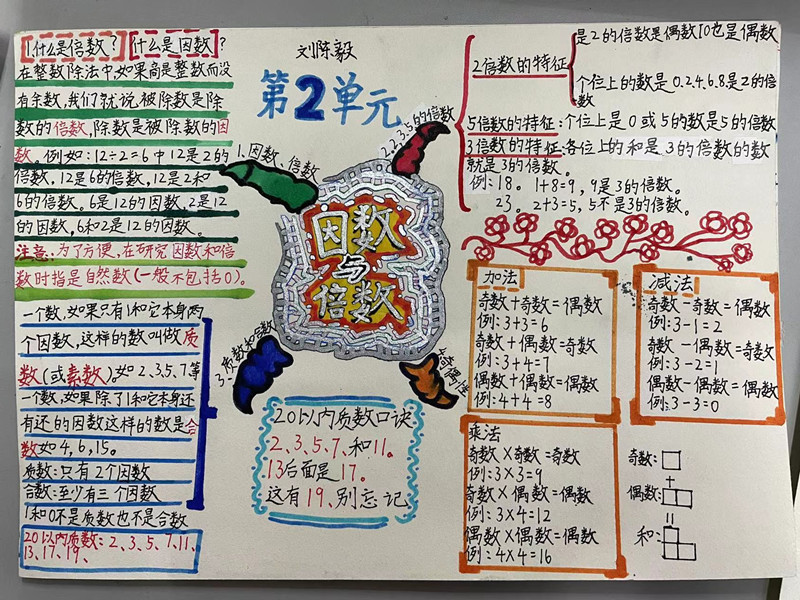 1.什么是倍数？什么是因数？
在整数除法中,如果商是整数而没
有余数,我们就说被除数是除
数的倍数,除数是被除数的因
数。例如:12÷2=6中12是2的
倍数,12是6的倍数,12是2和
6的倍数。6是12的因数,2是12
的因数,6和2是12的因数。
注意:为了方便,在研究因数和倍
数时指是自然数(一般不包括0)。
一个数,如果只有1和它本身两
个因数,这样的数叫做质
数(或素数)。如2、3、5、7、等
一个数,如果除了1和它本身还
有还的因数这样的数是合
数如4,6,15。
质数:只有2个因数
合数:至少有三个因数
1和0不是质数也不是合数
20以内质数:2、3、5、7、11、
13、17、19、
刘陈毅
第2单元
1.因数、倍数
2.2、3、5的倍数
因数
与
倍数
3.质数和合数
4.奇偶性
20以内质数口诀
2、3、5、7、和11。
13后面是17。
这有19、别忘记
2倍数的特征
是2的倍数是偶数[0也是偶数
个位上的数是0.2.4.6.8.是2的倍
数
5倍数的特征:个位上是0或5的数是5的倍数
3倍数的特征:各位上的和是3的倍数的数
就是3的倍数。
例:18。1+8=9,9是3的倍数。
23。2+3=5,5不是3的倍数。
加法
奇数+奇数=偶数
例:3+3=6
奇数+偶数=奇数
例:3+4=7
偶数+偶数=偶数
例:4+4=8
减法
奇数-奇数=偶数
例:3-1=2
奇数-偶数=奇数
例:3-2=1
偶数-偶数=偶数
例:3-3=0
乘法
奇数×奇数=奇数
例:3×3=9
奇数×偶数=偶数
例:3×4=12
偶数×偶数=偶数
例:4×4=16
奇数:
+
偶数:
=
和: